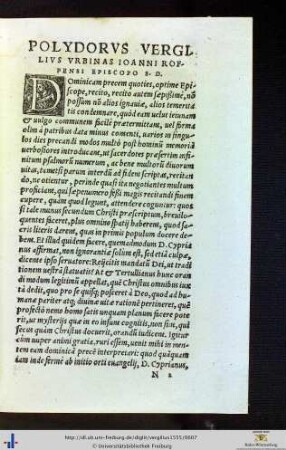 POLYDORVS VERGI,
LIVS VRBINAS IOANNI ROF-
FENSI EPISCOPO S. D.
DOminicam precem quoties, optime Epi
scope, recito, recito autem sæpißime, nō
possum nō alios ignauiæ, alios temerita
tis condemnare, quòd eam uelut ieiunam
& uulgo communem facile prætermittant, uel forma
olim à patribus data minus comenti, uarios in singu
los dies precandi modos multò post hominū memoriā
uerbosiores introducant, ut sacerdotes præsertim infi-
nitum psalmorū numerum, ac bene multorū diuorum
uitas, tametsi parum interdū ad fidem scriptas, recitan
do, ne otientur, perinde quasi ita negotiantes multum
proficiant, qui sæpenumero festi magis recitandi finem
cupere, quàm quod legunt, attendere cognoscuntur: quòd
si tale munus secundum Christi præscriptum, breuilo-
quentes facerent, plus omnino spatij haberent, quod sa-
cris literis darent, quas in primis populum docere de-
bent. Et illud quidem facere, quemadmodum D. Cypria
nus affirmat, non ignorantiæ solùm est, sed etiā culpæ,
dicente ipso seruatore: Reijcitis mandatū Dei, ut tradi
tionem uestrā statuatis. At & Tertullianus hunc oran
di modum legitimū appellat, quē Christus omnibus iux
tà dedit, quo pro se quisq; posceret à Deo, quod ad hu-
manæ pariter atq; diuinæ uitæ rationē pertineret, quē
profectò nemo homo satis unquam planum facere pote
rit, ut mysterijs quæ in eo insunt cognitis, non sciat, quā
secus quàm Christus docuerit, orandū iudicent. Igitur
cùm nuper animi gratia, ruri essem, uenit mihi in men-
tem eam dominicā precē interpretari: quod quanquam
iam inde fermè ab initio orti euangelij, D. Cyprianus,
N 2
http://dl.ub.uni-freiburg.de/diglit/vergilius1555/0007
© Universitätsbibliothek Freiburg